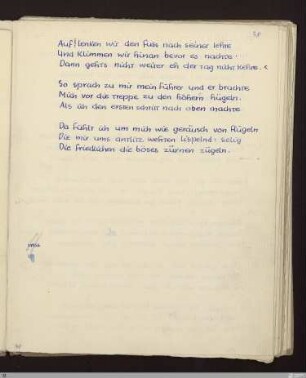 Auf! lenken wir den Fuss nach seiner lehre
Und klimmen wir hinan bevor es nachte·
Dann gehts nicht weiter eh der tag nicht kehre.«
So sprach zu mir mein führer und er brachte
Mich vor die treppe zu den höhern hügeln.
Als ich den ersten schritt nach oben machte
Da fühlt ich um mich wie geräusch von flügeln
Die mir ums antlitz wehten lispelnd: selig
Die friedlichen die böses zürnen zügeln.